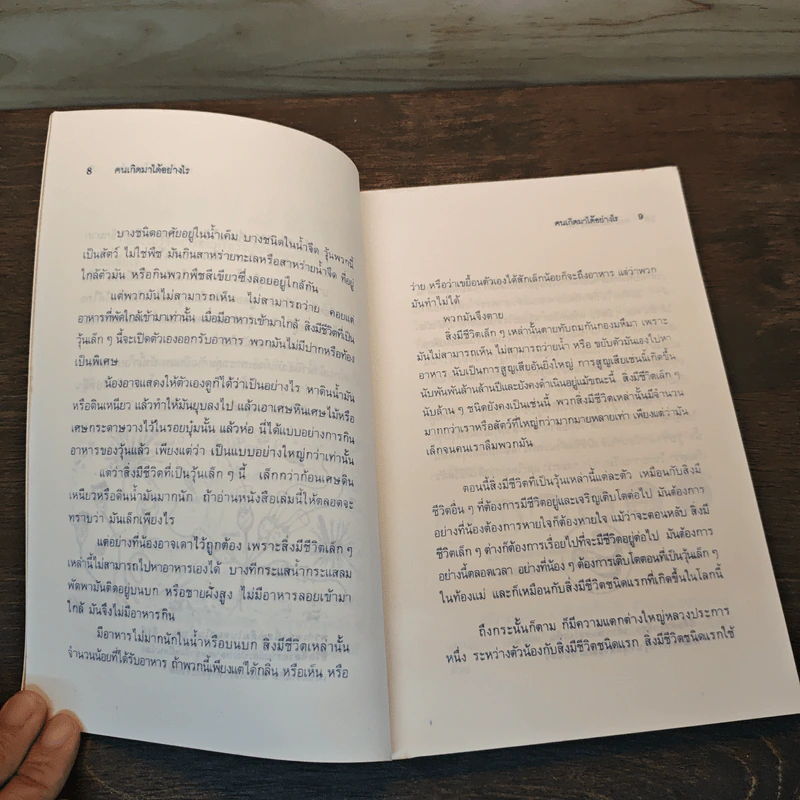 8 คนเกิดมาได้อย่างไร
บางชนิดอาศัยอยู่ในน้ำเค็ม บางชนิดในน้ำจืด วุ้นพวกนี้
เป็นสัตว์ ไม่ใช่พืช มันกินสาหร่ายทะเลหรือสาหร่ายน้ำจืด ที่อยู่
ใกล้ตัวมัน หรือกินพวกพืชสีเขียวซึ่งลอยอยู่ใกล้กัน
แต่พวกมันไม่สามารถเห็น ไม่สามารถว่าย คอยแต่
อาหารที่พัดใกล้เข้ามาเท่านั้น เมื่อมีอาหารเข้ามาใกล้ สิ่งมีชีวิตที่เป็น
วุ้นเล็ก ๆ นี้จะเปิดตัวเองออกรับอาหาร พวกมันไม่มีปากหรือท้อง
เป็นพิเศษ
น้องอาจแสดงให้ตัวเองดูก็ได้ว่าเป็นอย่างไร หาดินน้ำมัน
หรือดินเหนียว แล้วทำให้มันยุบลงไป แล้วเอาเศษหินเศษไม้หรือ
เศษกระดาษวางไว้ในรอยบุ๋มนั้น แล้วห่อ นี่ได้แบบอย่างการกิน
อาหารของวุ้นแล้ว เพียงแต่ว่า เป็นแบบอย่างใหญ่กว่าเท่านั้น
แต่ว่าสิ่งมีชีวิตที่เป็นวุ้นเล็ก ๆ นี้ เล็กกว่าก้อนเศษดิน
เหนียวหรือดินน้ำมันมากนัก ถ้าอ่านหนังสือเล่มนี้ให้ตลอดจะ
ทราบว่า มันเล็กเพียงไร
แต่อย่างที่น้องอาจเดาไว้ถูกต้อง เพราะสิ่งมีชีวิตเล็ก ๆ
เหล่านี้ไม่สามารถไปหาอาหารเองได้ บางทีกระแสน้ำกระแสลม
พัดพามันติดอยู่บนบก หรือชายฝั่งสูง ไม่มีอาหารลอยเข้ามา
ใกล้ มันจึงไม่มีอาหารกิน
มีอาหารไม่มากนักในน้ำหรือบนบก สิ่งมีชีวิตเหล่านั้น
จำนวนน้อยที่ได้รับอาหาร ถ้าพวกนี้เพียงแต่ได้กลิ่น หรือเห็น หรือ
คนเกิดมาได้อย่างไร 9
ว่าย หรือว่าเขยื้อนตัวเองได้สักเล็กน้อยก็จะถึงอาหาร แต่ว่าพวก
มันทำไม่ได้
พวกมันจึงตาย
สิ่งมีชีวิตเล็ก ๆ เหล่านั้นตายทับถมกันกองมหึมา เพราะ
มันไม่สามารถเห็น ไม่สามารถว่ายน้ำ หรือ ขยับตัวมันเองไปหา
อาหาร นับเป็นการสูญเสียอันยิ่งใหญ่ การสูญเสียเช่นนี้เกิดขึ้น
นับพันพันล้านล้านปีและยังคงดำเนินอยู่แม้ขณะนี้ สิ่งมีชีวิตเล็ก ๆ
นับล้าน ๆ ชนิดยังคงเป็นเช่นนี้ พวกสิ่งมีชีวิตเหล่านั้นมีจำนวน
มากกว่าเราหรือสัตว์ที่ใหญ่กว่ามากมายหลายเท่า เพียงแต่ว่ามัน
เล็กจนคนเราลืมพวกมัน
ตอนนี้สิ่งมีชีวิตที่เป็นวุ้นเหล่านี้แต่ละตัว เหมือนกับสิ่งมี
ชีวิตอื่น ๆ ที่ต้องการมีชีวิตอยู่และเจริญเติบโตต่อไป มันต้องการ
อย่างที่น้องต้องการหายใจก็ต้องหายใจ แม้ว่าจะตอนหลับ สิ่งมี
ชีวิตเล็ก ๆ ต่างก็ต้องการเรื่อยไปที่จะมีชีวิตอยู่ต่อไป มันต้องการ
อย่างนี้ตลอดเวลา อย่างที่น้อง ๆ ต้องการเติบโตตอนที่เป็นวุ้นเล็ก ๆ
ในท้องแม่ และก็เหมือนกับสิ่งมีชีวิตชนิดแรกที่เกิดขึ้นในโลกนี้
ถึงกระนั้นก็ตาม ก็มีความแตกต่างใหญ่หลวงประการ
หนึ่ง ระหว่างตัวน้องกับสิ่งมีชีวิตชนิดแรก สิ่งมีชีวิตชนิดแรกใช้